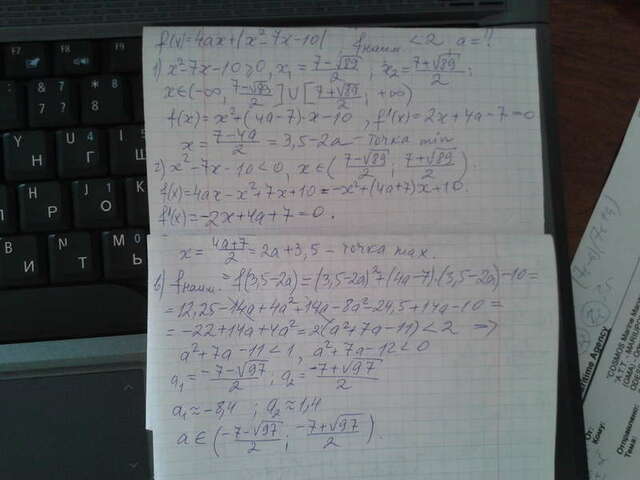 f(x)=4ax+|x²-7x-10| , fнаим. <2 , a=?
1) x²-7x-10≥0, x₁=(7-√89)/2 ; x₂=(7+√89)/2 ;
x∈(-∞, (7-√89)/2]∪[(7+√89)/2 ; +∞)
f(x)=x²+(4a-7)·x-10 , f'(x)=2x+4a-7=0
x=(7-4a)/2=3,5-2a-точка min
2) x²-7x-10<0, x∈((7-√89)/2 ; (7+√89)/2).
f(x)=4ax-x²+7x+10=-x²+(4a+7)x+10.
f'(x)=-2x+4a+7=0.
x=(4a+7)/2=2a+3,5-точка max.
в) fнаим.=f(3,5-2a)=(3,5-2a)²+(4a-7)·(3,5-2a)-10=
=12,25-14a+4a²+14a-8a²-24,5+14a-10=
=-22+14a+4a²=2(a²+7a-11)<2 ⇒
a²+7a-11<1, a²+7a-12<0
a₁=(-7-√97)/2 ; a₂=(-7+√97)/2
a₁≈-8,4 ; a₂≈1,4
a∈((-7-√97)/2 ; (-7+√97)/2).
F7
F8
&
7
*
8
Г
Н
В
И
Т
Ь
Alt
ritime Agency
От:
Кому:
Отправлено:
Тема: